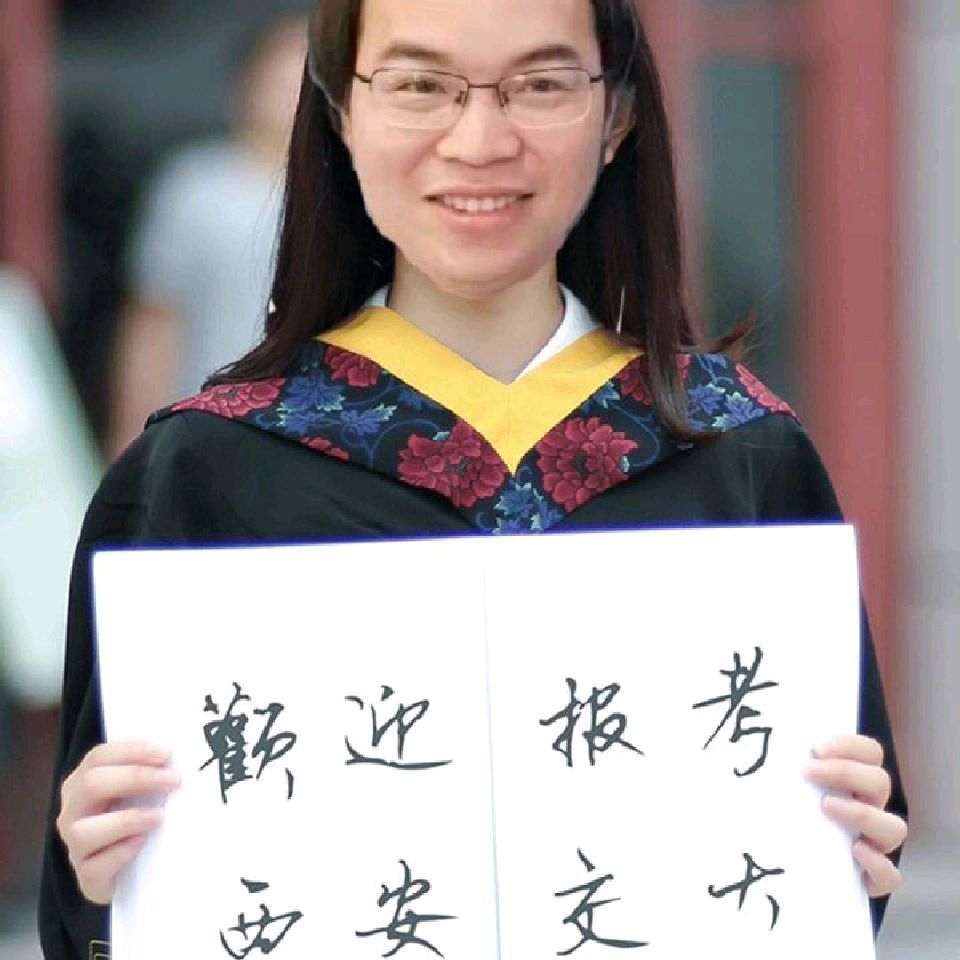 歡迎报考
西安交大